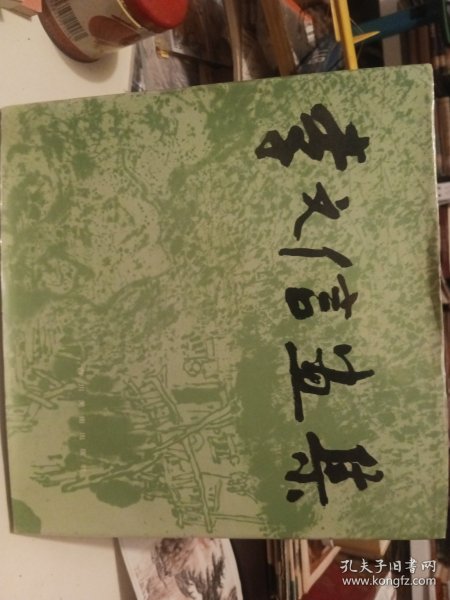 李文信画集
孔夫子旧书网
www.kongfz.com